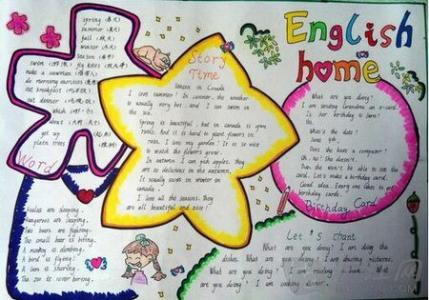 English
home
spring (春天)
summer (夏天)
fall (秋天)
winter (冬天)
season (季节)
swim
fly kites
make a snowman
eat breakfast
eat dinner
which
get up
plant trees
Word
Story
Time
Season in Canada
I love summer! In summer, the weather
is usually very hot, and I can swim in
the sea.
Spring is beautiful, but in canada is gone
And it is hard to plant flowers in
I love my garden! It is so nice
to watch the flowers grow.
In autumn I can pick apples, they
are so delicious in the autumn,
It usually snows in winter in
canada.
I love all the seasons. They
are all beautiful and nice!
What are you doing?
I am sending Grandma an e-card.
Is her birthday is here?
No.
What's the date?
June
Does she have a computer?
Oh, no! She doesn't.
Then she won't be able to use the
card. Let's make a birthday card.
Good idea. Every one likes to get
birthday cards.
Birthday Card
Koalas are sleeping.
Kangaroos are jumping.
Two bears are fighting.
The small bear is biting.
A monkey is climbing.
A bird is flying!
A lion is sharing.
The zoo is never boring.
Let's chant
What are you doing? I am doing the
dishes. What are you doing? I am drawing pictures.
What are you doing? I am reading a book. What
are you doing? I am cooking dinner.